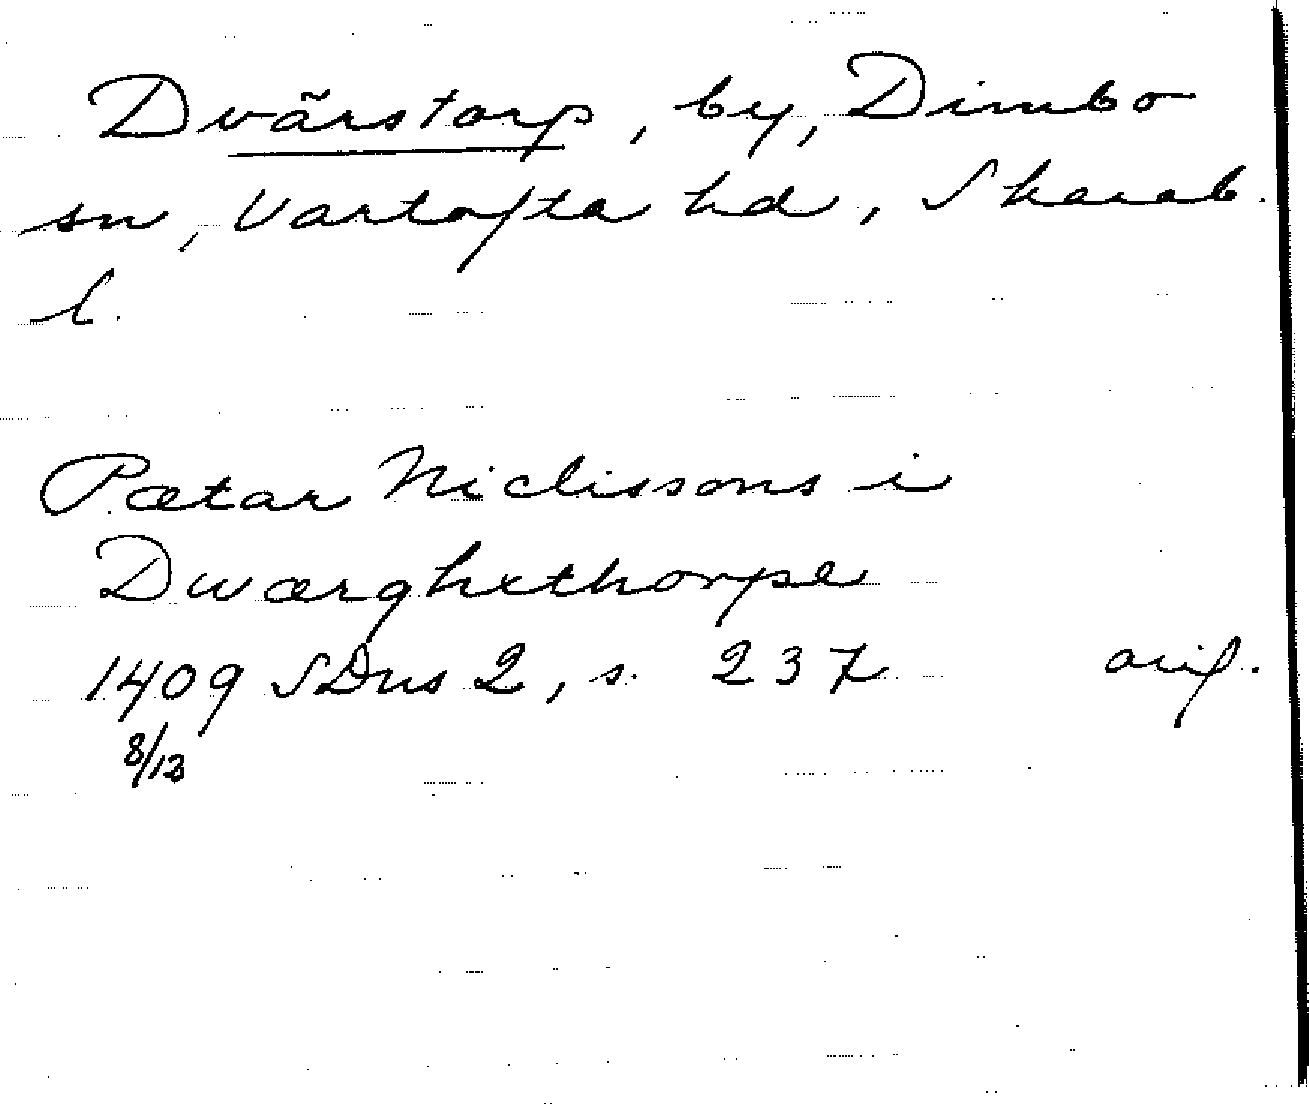 Dvärstorp, by, Dimbo
sn, Vartofta hd, Skarab.
l.
Pætar Niclissons i
Dwærghæthorpe
1409 SDns 2, s. 237 orig.
8/12